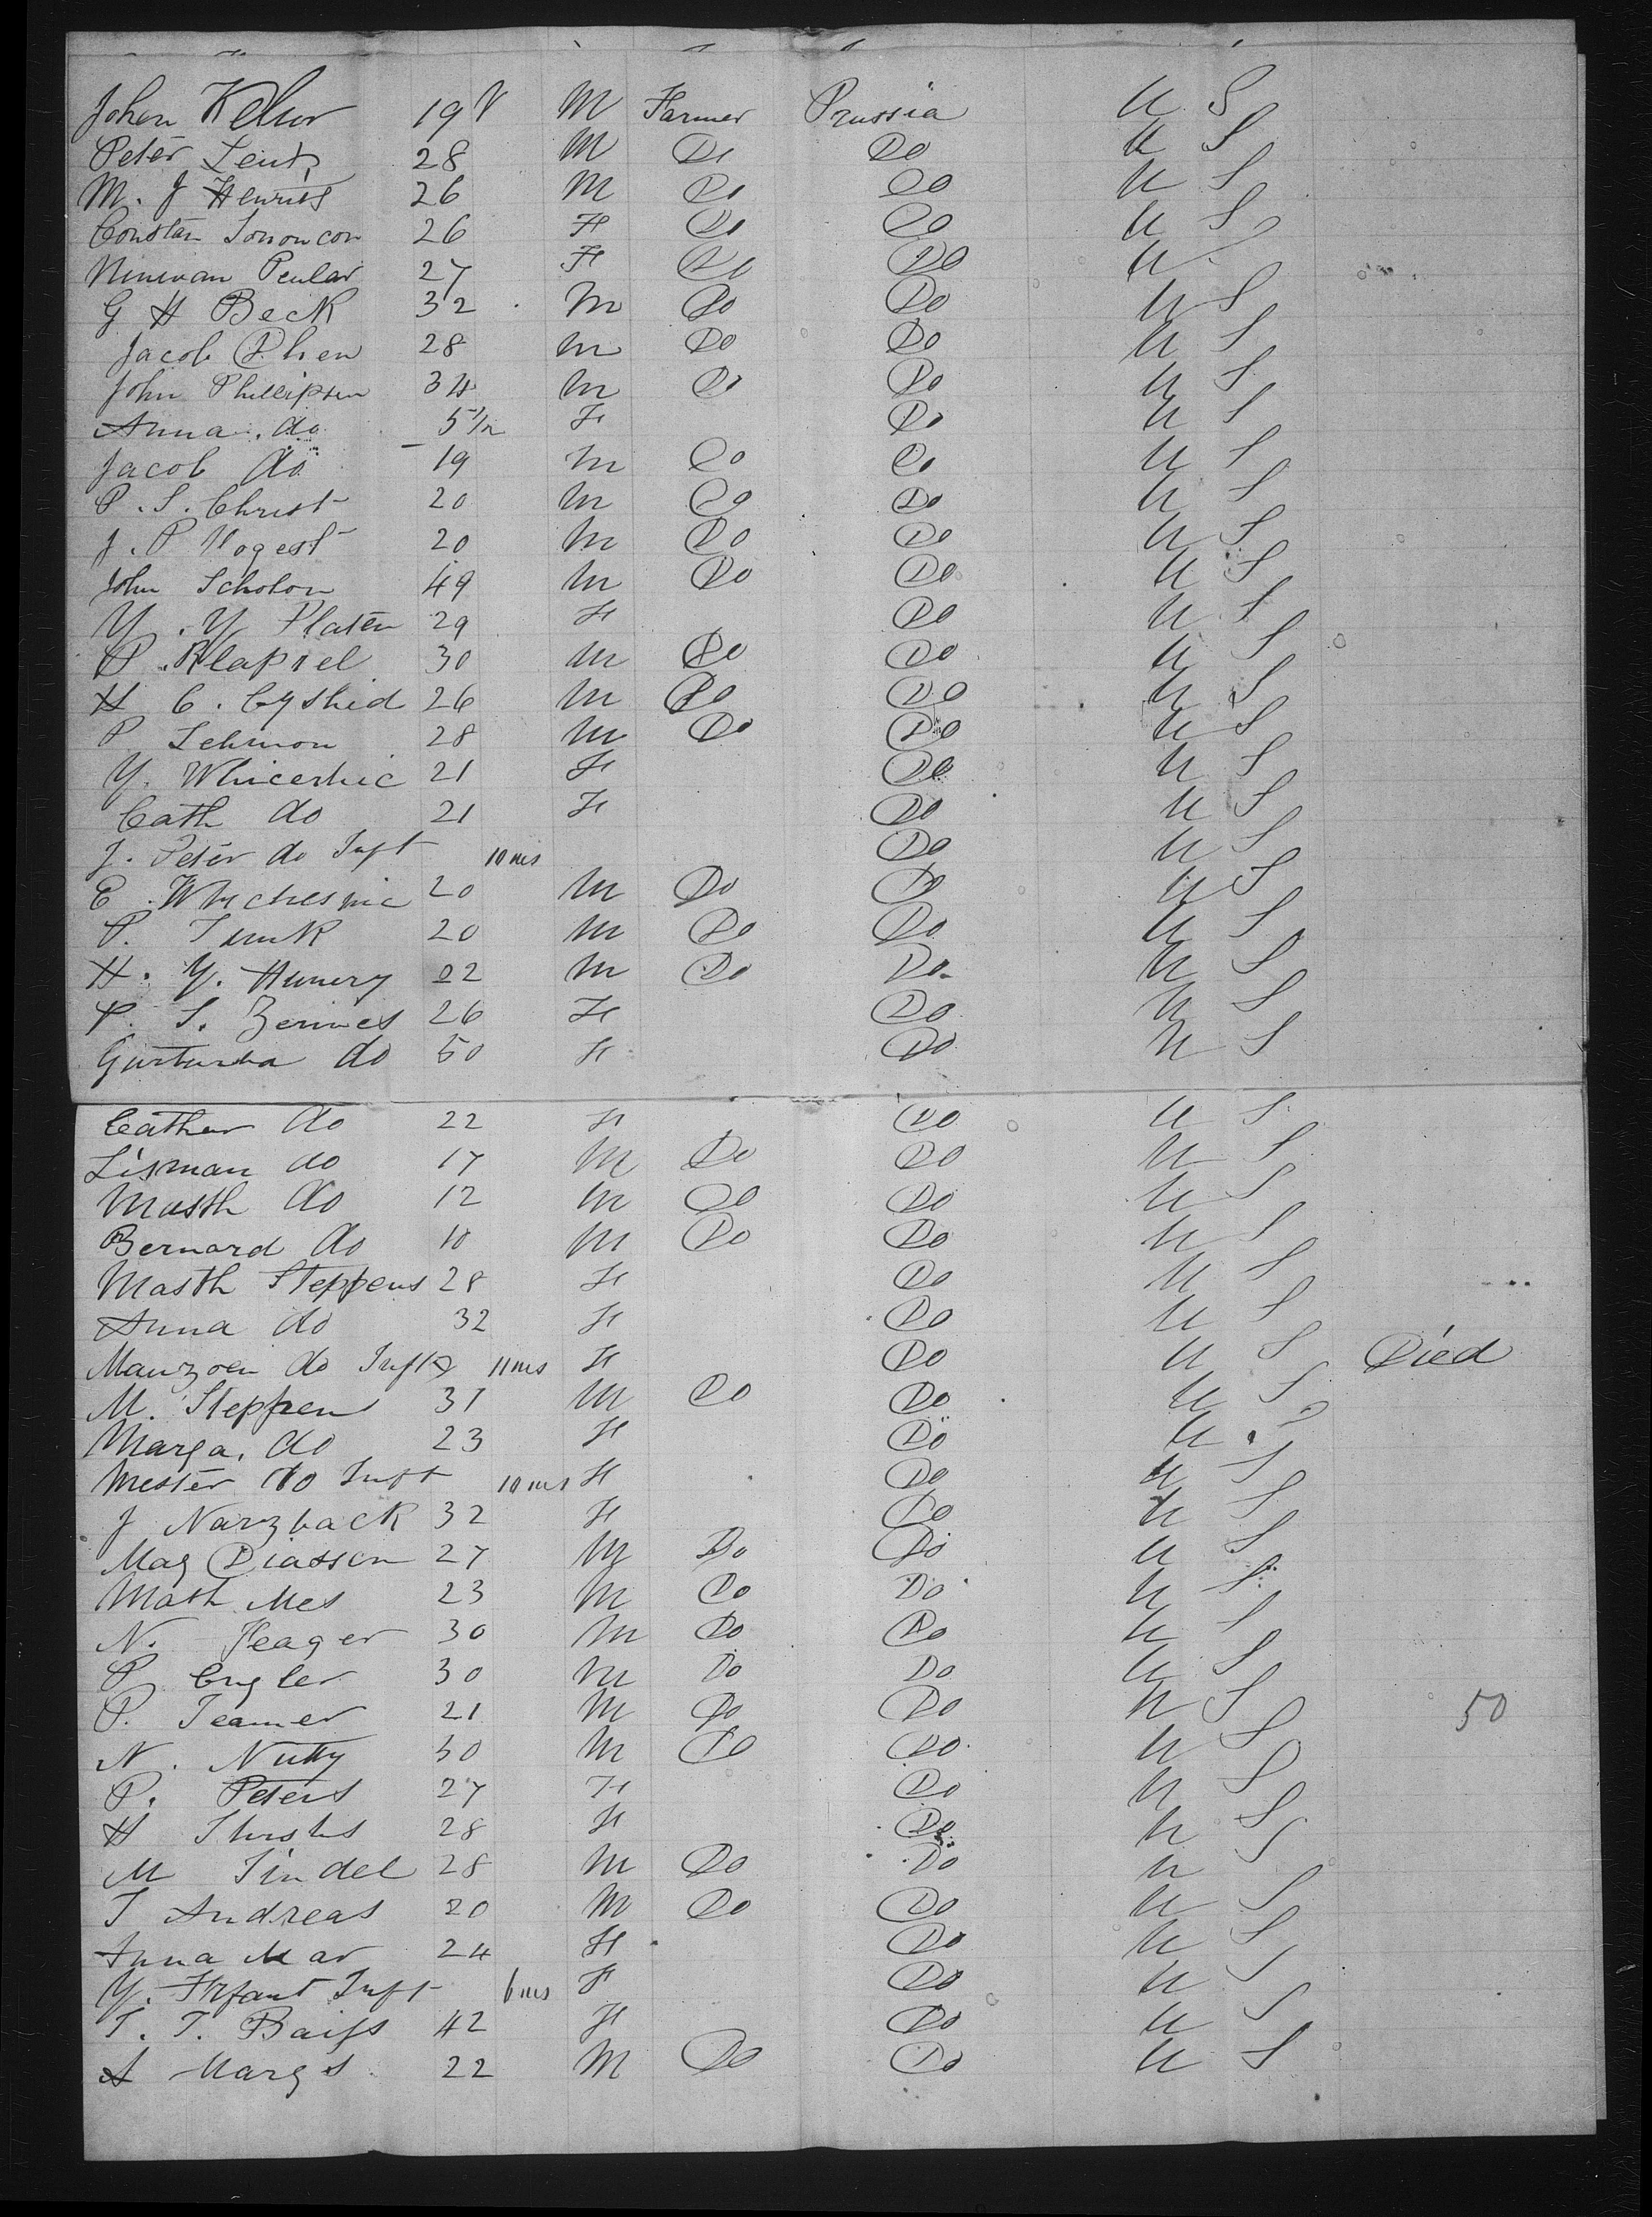 John Kelur 19 M Farmer Prussia U S
Peter Lentz 28 M Do Do U S
M. J Henries 26 M Do Do U S
Constan 26 F Do Do U S
Peular 27 F Do Do U
G H Beck 32 M Do Do U S
Jacob Dhen 28 M Do Do U S
John Phillipsen 34 M Do Do U S
Anna do F Do U S
Jacob do 19 M Do Do U S
P. S. Christ 20 M Do Do U S
J. P Hogest 20 M Do Do U S
John Scholon 49 M Do Do U S
Y. Y Platen 29 F Do U S
P. Klapiel 30 M Do Do U S
H C. Cyshid 26 M Do Do U S
P Lehmon 28 M Do Do U S
Y. Whiceshic 21 F Do U S
Cath do 21 F Do U S
J. Peter do Inft 10 ms Do U S
E. 20 M Do Do U S
P. Tunk 20 M Do Do U S
H. Y. Hunery 22 M Do Do U S
P. S. Zerines 26 F Do U S
do 50 F Do U S
Cather do 22 F Do U S
Lisman do 17 M Do Do U S
Masth do 12 M Do Do U S
Bernard do 10 M Do Do U S
Masth Steppens 28 F Do U S
Anna do 32 F Do U S
Manzoen do Inft 11 ms F Do U S Died
M. Steppen 31 M Do Do U S
Marga. do 23 F Do U S
Mester do Inft 10 ms F Do U S
J Narzback 32 F Do U S
Mag Diasson 27 M Do Do U S
Math Mes 23 M Do Do U S
N. Feager 30 M Do Do U S
P Engler 30 M Do Do U S
P. Teamer 21 M Do Do U S 50
N. Nutty 30 M Do Do U S
P. Peters 27 F Do U S
H 28 F Do U S
M Tindel 28 M Do Do U S
T Andreas 20 M Do Do U S
Anna Mar 24 F Do U S
Y. Inft 6 ms F Do U S
T. T. Baifs 42 F Do U S
A Margs 22 M Do Do U S